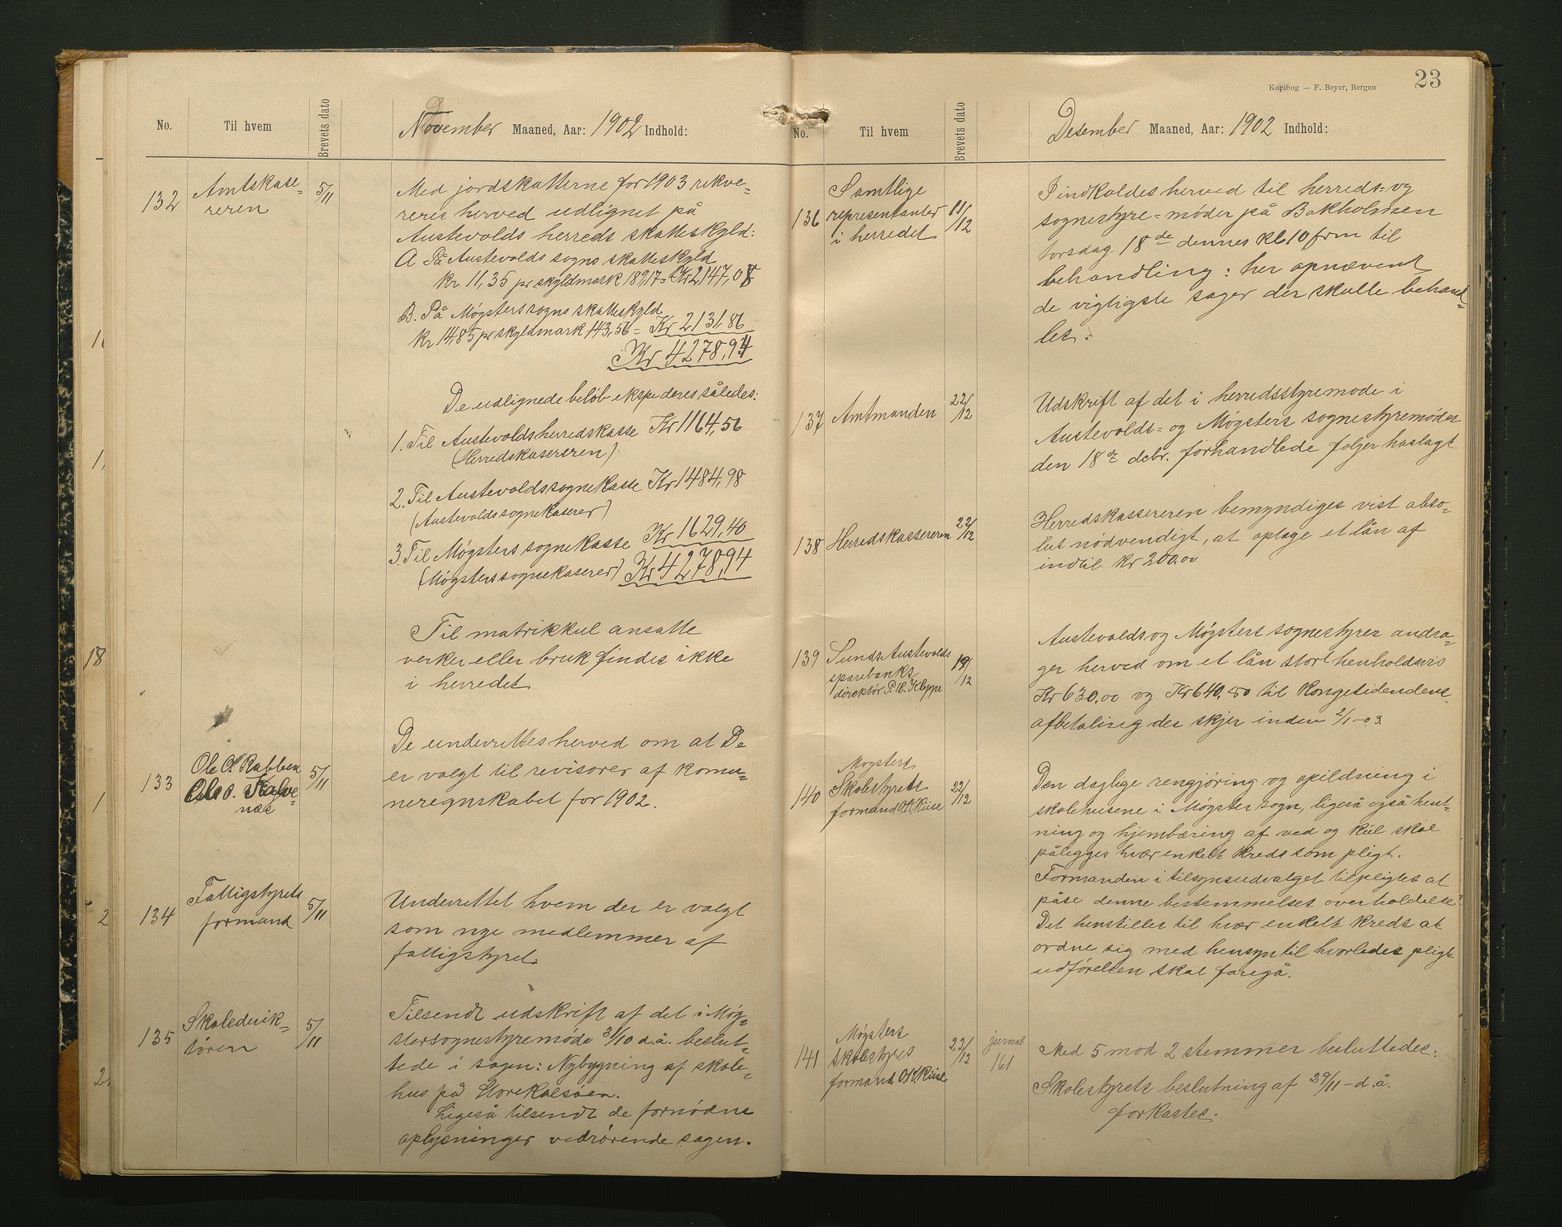 No. Til hvem Brevets dato November Maaned, Aar: 1902 Indhold:
132 Amtskase- 5/11 Med jordskatterne for 1903 rekve-
reren reres herved udlignet på
Austevolds herreds skatteskyld:
A På Austevolds sogns skatteskyld
kr 11,35 pr skyldmark 189,17 = Kr 2147,08
B. På Møgsters sogns skatteskyld
kr 14,85 pr skyldmark 143,56 = Kr 2131,86
Kr 4278,94
De udlignede beløb ekspederes således:
1. Til Austevolds herredskasse Kr 1164,56
(Herredskasereren)
2. Til Austevolds sognekasse Kr 1484,98
(Austevolds sognekaserer)
3. Til Møgsters sognekasse Kr 1629,40
(Møgsters sognekaserer) Kr 4278,94
Til matrikkul ansatte
verker eller bruk findes ikke
i herredet
133 Ole O. Rabben 5/11 De underrettes herved om at De
Ole O. Kalve- er valgt til revisorer af komu-
næs neregnskabet for 1902.
134 Fattigstyrets 5/11 Underrettet hvem der er valgt
formand som nye medlemmer af
fattigstyret.
135 Skoledirik- 5/11 Tilsendt udskrift af det i Møg-
tøren stersognestyremøde 31/10 d.å. beslut-
tede i sagen: Nybygning af skole-
hus på Storekalsøen.
Ligeså tilsendt de fornødne
oplysninger vedrørende sagen.
23
Kopibog — F. Beyer, Bergen
No. Til hvem Brevets dato Desember Maaned, Aar: 1902 Indhold:
136 Samtlige 11/12 I indkaldes herved til herreds- og
representanter sognestyre-møder på Bakholmen
i herredet torsdag 18de dennes kl. 10 frm til
behandling: her opnævent
de vigtigste sager der skulle behand-
les.
137 Amtmanden 22/12 Udskrift af det i herredsstyremøde i
Austevolds- og Møgsters sognestyremøder
den 18de decbr. forhandlede følger hoslagt
138 Herredskassereren 22/12 Herredskassereren bemyndiges vist abso-
lut nødvendigt, at optage et lån af
indtil kr 200,00
139 Sunds Austevolds 19/12 Austevolds og Møgsters sognestyrer andra-
sparebanks ger herved om et lån stort henholdsvis
direktør P. C. Kleppe Kr 630,00 og Kr 640,80 til kongetidendens
afbetaling der skjer inden 2/1-03.
140 Møgsters
Skolestyrets 22/12 Den daglige rengjøring og opildning i
formand O. K. Kiise skolehusene i Møgster sogn, ligeså også hent-
ning og hjembæring af ved og kul skal
pålegges hvær enkelt kreds som pligt.
Formanden i tilsynsudvalget tilpligtes at
påse denne bestemmelses overholdelse.
Det henstilles til hvær enkelt kreds at
ordne sig med hensyn til hvorledes pligt-
udførelsen skal foregå.
141 Møgsters 22/12 jurnal
skolestyres 161 Med 5 mod 2 stemmer besluttedes:
formand O. K. Kiise Skolestyrets beslutning af 29/11 - d.å.
forkastes.
18
1
2
2